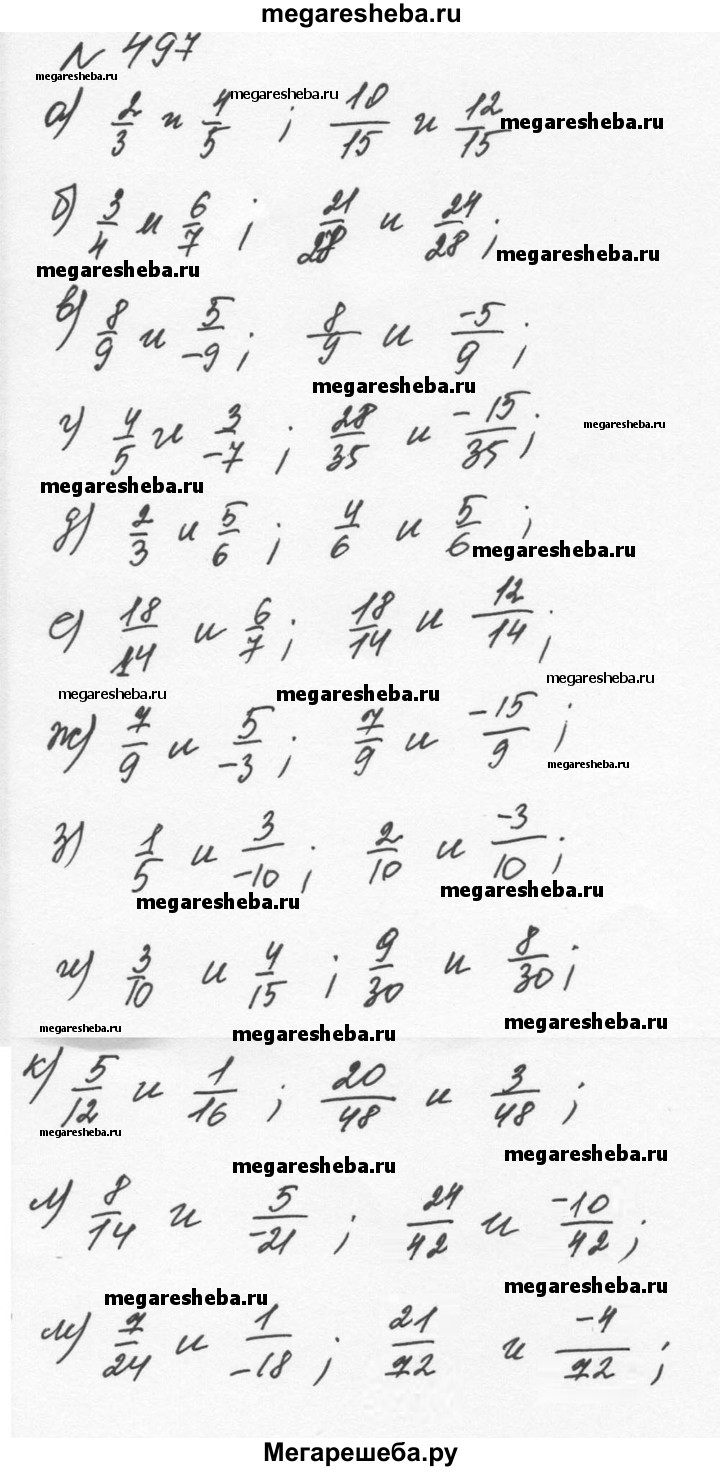 megaresheba.ru
№ 497
megaresheba.ru
а) 2/3 и 4/5 ; 10/15 и 12/15
megaresheba.ru
megaresheba.ru
б) 3/4 и 6/7 ; 21/28 и 24/28 ;
megaresheba.ru
megaresheba.ru
в) 8/9 и 5/-9 ; 8/9 и -5/9 ;
megaresheba.ru
г) 4/5 и 3/-7 ; 28/35 и -15/35 ;
megaresheba.ru
megaresheba.ru
д) 2/3 и 5/6 ; 4/6 и 5/6 ;
megaresheba.ru
е) 18/14 и 6/7 ; 18/14 и 12/14 ;
megaresheba.ru
megaresheba.ru
megaresheba.ru
ж) 7/9 и 5/-3 ; 7/9 и -15/9 ;
megaresheba.ru
з) 1/5 и 3/-10 ; 2/10 и -3/10 ;
megaresheba.ru
megaresheba.ru
и) 3/10 и 4/15 ; 9/30 и 8/30 ;
megaresheba.ru
megaresheba.ru
megaresheba.ru
к) 5/12 и 1/16 ; 20/48 и 3/48 ;
megaresheba.ru
megaresheba.ru
megaresheba.ru
л) 8/14 и 5/-21 ; 24/42 и -10/42 ;
megaresheba.ru
megaresheba.ru
м) 7/24 и 1/-18 ; 21/72 и -4/72 ;
Мегарешеба.ру